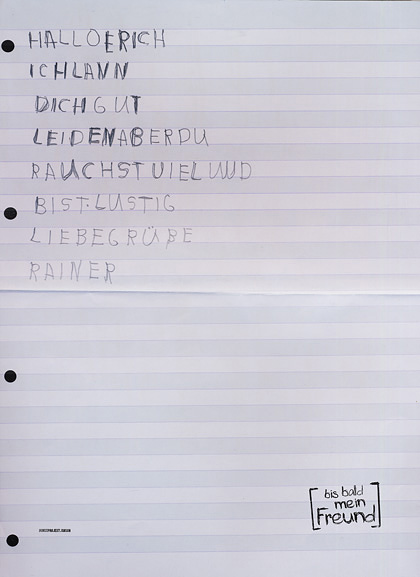 HALLOERICH
ICHLANN
DICHGUT
LEIDENABERDU
RAUCHSTUIELUUD
BIST.LUSTIG
LIEBEGRÜßE
RAINER
bis bald
mein
Freund